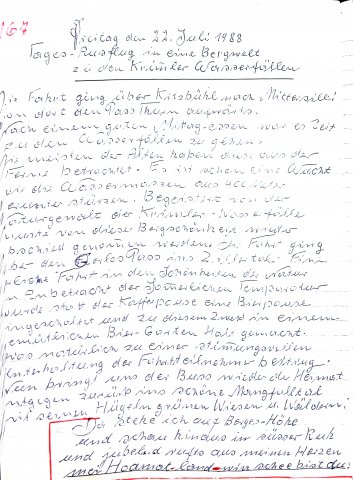 167
Freitag den 22. Juli 1988
Tages-Ausflug in eine Bergwelt
zu den Krimler Wasserfällen
Die Fahrt ging über Kitzbühl nach Mittersill
von dort den Pass Thurn
Nach einem guten Mitag-essen war es Zeit
zu den Wasserfällen zu gehen.
Die meisten der Alten haben dies aus der
Ferne betrachtet. Es ist schon eine Wucht
wie die Wassermassen aus 400 Meter
herunter stürzen. Begeistert von der
Naturgewalt der Krimler-Wasserfälle
musste von dieser Bergschönheit wieder
Abschied genommen werden. Die Fahrt ging
über den Gerlos Pass ins Zillertal. Eine
Fahrt in den Schönheiten der Natur
in Anbetracht der Sommerlichen Temperatur
wurde statt der Kaffepause eine Bierpause
eingeschaltet und zu diesem Zweck in einem
gemütlichen Bier-Garten Halt gemacht.
was natürlich zu einer stimmungsvollen
Unterhaltung der Fahrtteilnehmer beitrug.
Nun bringt uns der Buss wieder der Heimat
entgegen zurück ins schöne Mangfalltal
mit seinen Hügeln grünen Wiesen u. Wäldern.
Da stehe ich auf Berges-Höhe
und schau hinaus in süsser Ruh
und jubelnd rufts aus meinem Herzen
mei Hoamat-land-wia schee bist du.